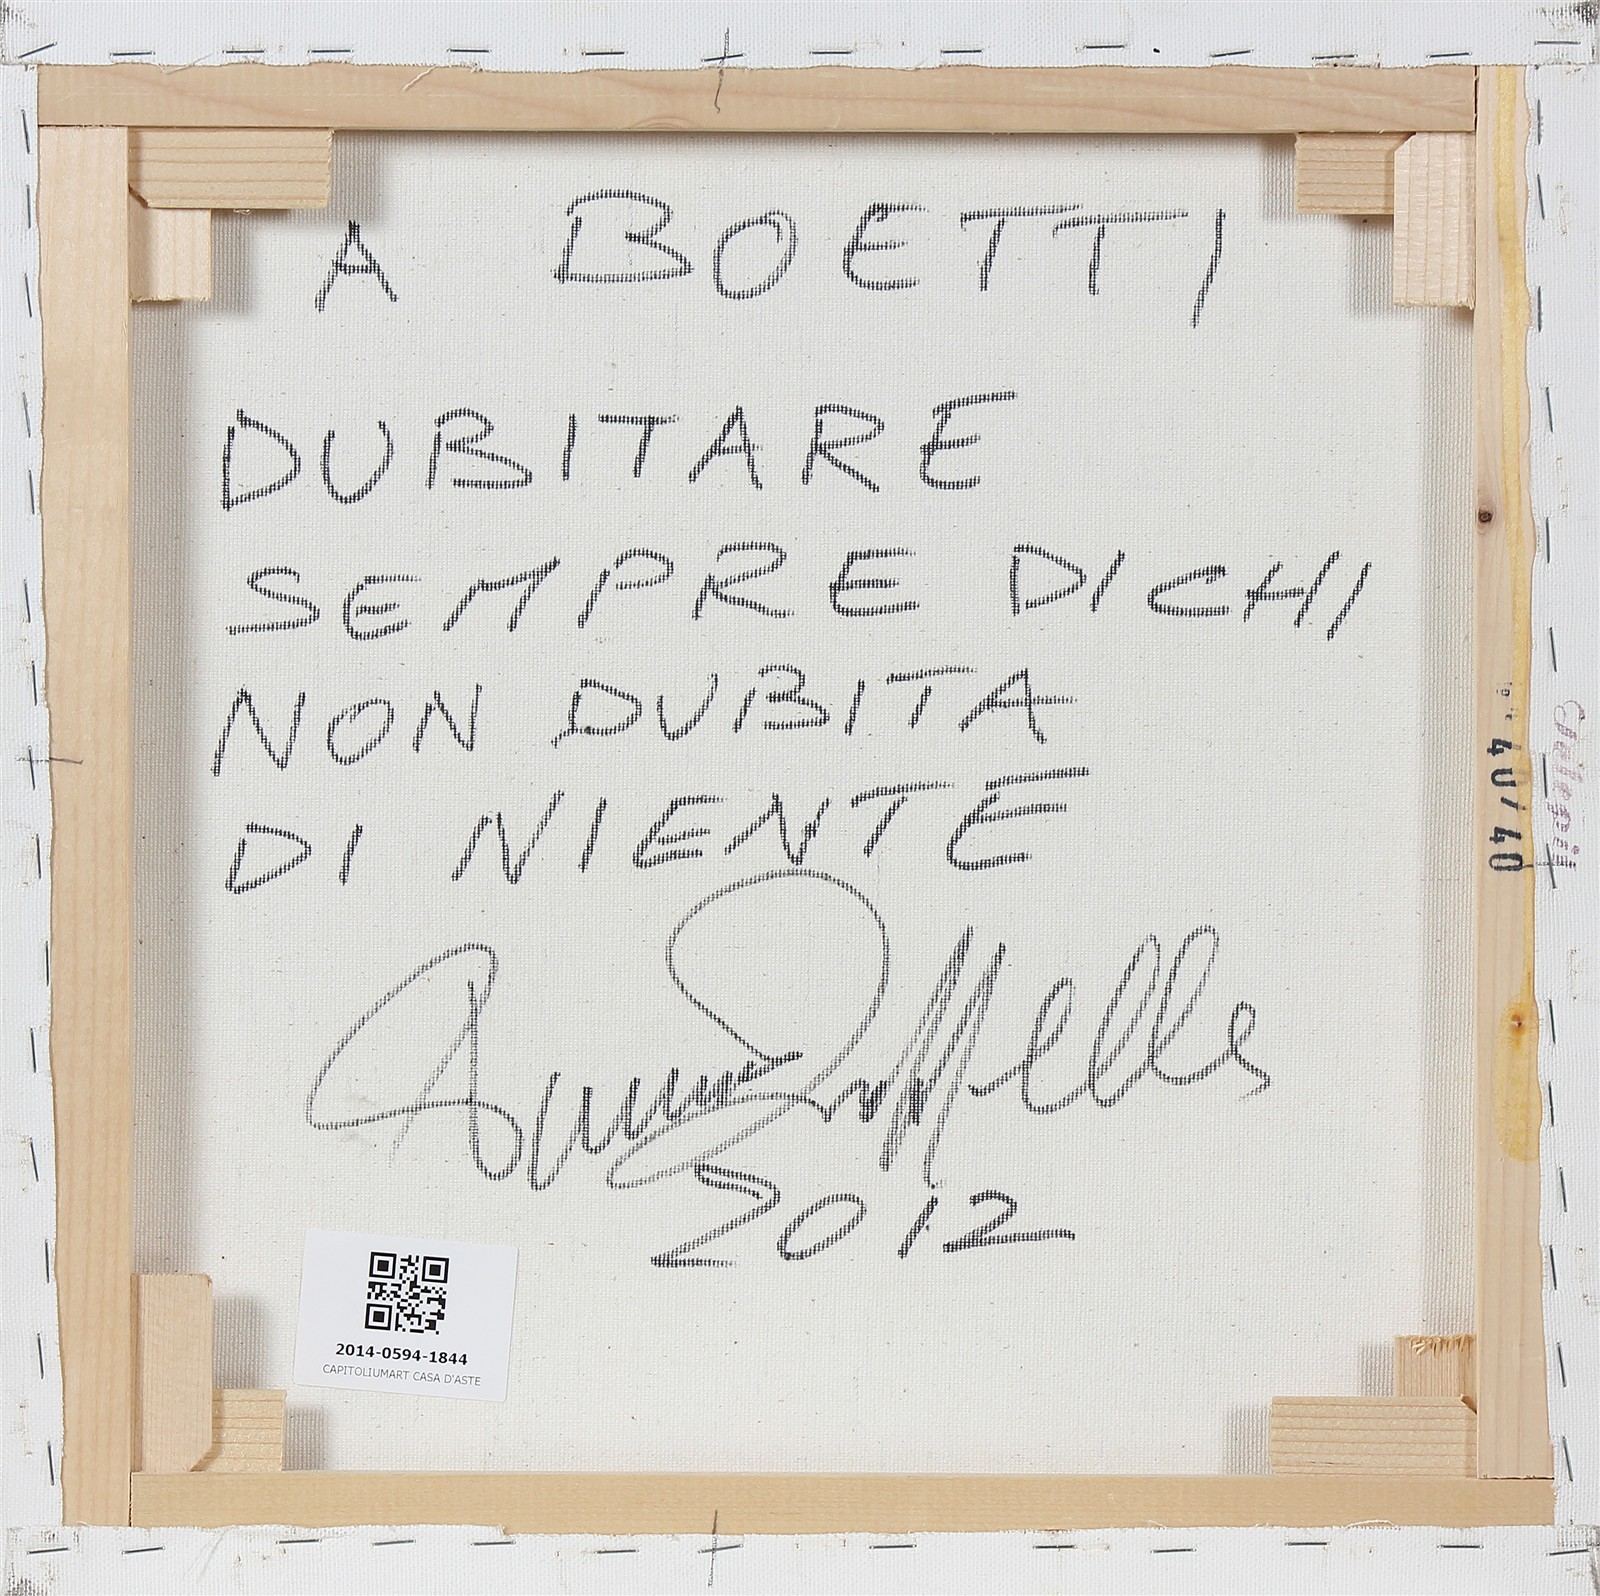 A BOETTI
DUBITARE
SEMPRE DI CHI
NON DUBITA
DI NIENTE
2012
40/40
2014-0594-1844
CAPITOLIUMART CASA D'ASTE